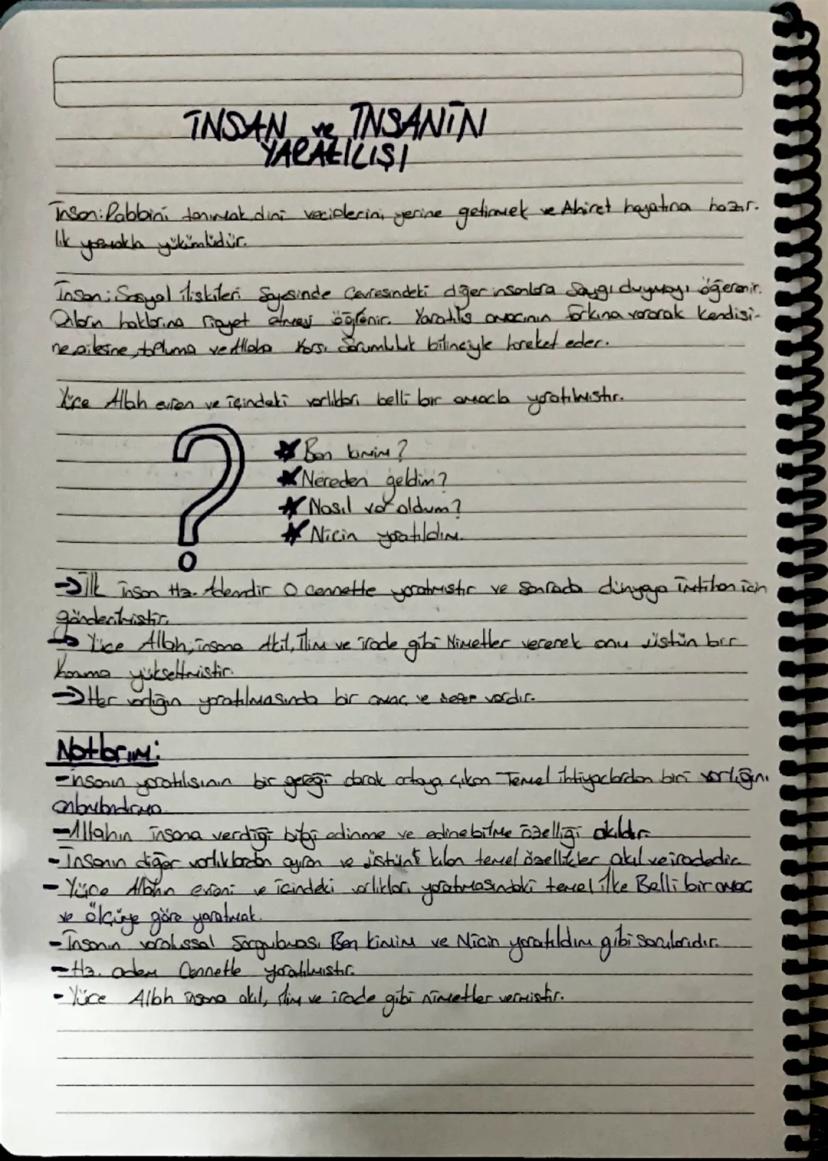 İNSAN ve İNSANİN
YARATILIŞI
İnsan: Rabbini tanımak dini vecibelerini yerine getirmek ve Ahiret hayatına hazır-
lık yapmakla yükümlüdür.
İnsan: Sosyal ilişkileri Sayesinde Çevresindeki diğer insanlara Saygı duymayı öğrenir.
Onların haklarına riayet etmeyi öğrenir. Yaratılış amacının farkına vararak kendisi-
ne ailesine, topluma ve Allaha Karşı Sorumluluk bilinciyle hareket eder.
Yüce Allah evren ve içindeki varlıkları belli bir amaçla yaratılmıştır.
? ★ Ben kimim?
★ Nereden geldim?
★ Nasıl var oldum?
★ Niçin yaratıldım.
→ İlk insan Hz. Ademdir O cennette yaratmıştır ve Sonrada dünyaya İmtihan için
gönderilmiştir.
→ Yüce Allah, insana Akıl, İlim ve irade gibi Nimetler vererek onu üstün bir
Konuma yükseltmiştir.
→ Her varlığın yaratılmasında bir amaç ve vardır.
Notlarım:
- insanın yaratılışının bir gereği olarak ortaya çıkan Temel ihtiyaçlardan biri varlığını
anlamlandırma.
- Allahın insana verdiği bilgi edinme ve edinebilme özelliği akıldır.
- İnsanın diğer varlıklardan ayıran ve üstün kılan temel özellikler akıl ve iradedir.
- Yüce Allahın evreni ve içindeki varlıkları yaratmasındaki temel ilke Belli bir amaç
ve ölçüye göre yaratmak.
- İnsanın varoluşsal Sorgulaması Ben kimim ve Niçin yaratıldım gibi sorularıdır.
- Hz. adem Cennette yaratılmıştır.
- Yüce Allah insana akıl, ilim ve irade gibi nimetler vermiştir.